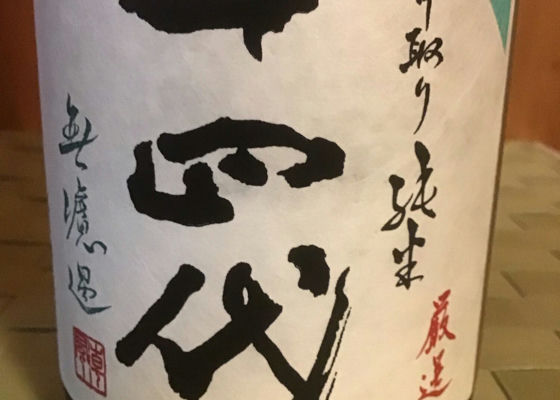 厳選
中取り純米
十四代
無濾過